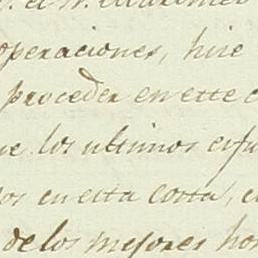 operaciones, hise
proceder en este
los ultimos esfu
en esta costa,
de los mejores ho